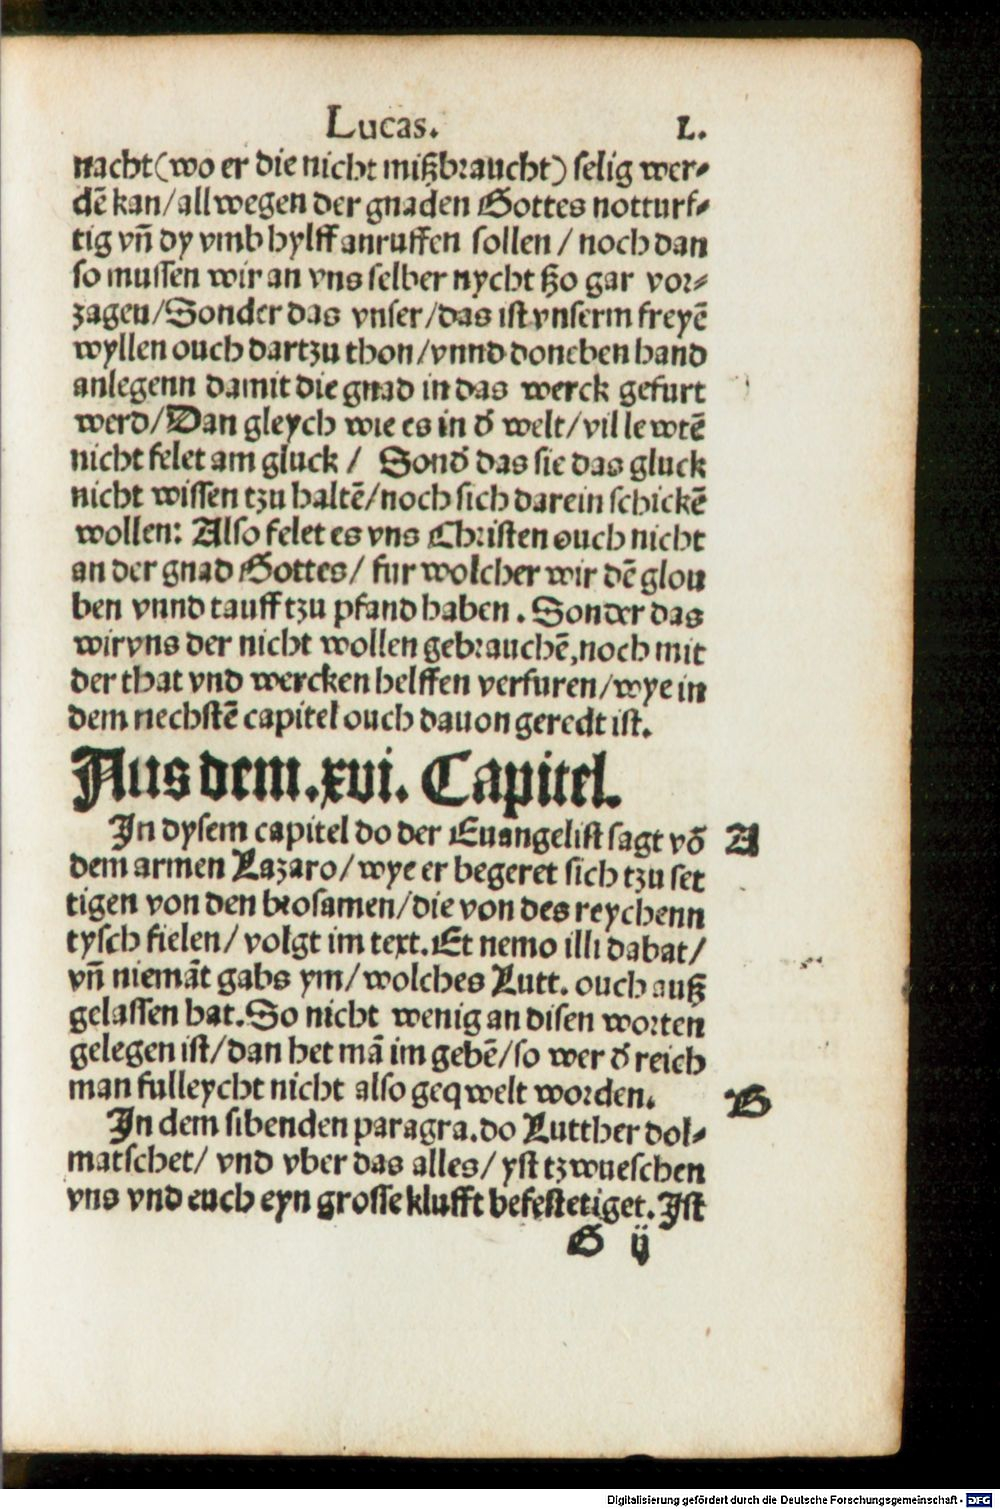 Lucas. L.
nacht(wo er die nicht mißbraucht) selig wer⸗
dē kan/allwegen der gnaden Gottes notturf⸗
tig vñ dy vmb hylff anruffen sollen / noch dan
so mussen wir an vns selber nycht tzo gar vor⸗
zagen/Sonder das vnser/das ist vnserm freyē
wyllen ouch dartzu thon/vnnd doneben hand
anlegenn damit die gnad in das werck gefurt
werd/Dan gleych wie es in d̄ welt/vil lewtē
nicht felet am gluck / Sond̄ das sie das gluck
nicht wissen tzu haltē/noch sich darein schickē
wollen: Also felet es vns Christen ouch nicht
an der gnad Gottes/ fur wolcher wir dē glou
ben vnnd tauff tzu pfand haben . Sonder das
wir vns der nicht wollen gebrauchē,noch mit
der that vnd wercken helffen verfuren/wye in
dem nechstē capitel ouch dauon geredt ist.
Aus dem.xvi. Capitel.
In dysem capitel do der Euangelist sagt vō A
dem armen Lazaro/wye er begeret sich tzu set
tigen von den brosamen/die von des reychenn
tysch fielen/ volgt im text.Et nemo illi dabat/
vñ niemāt gabs ym/wolches Lutt. ouch auß
gelassen hat.So nicht wenig an disen worten
gelegen ist/dan het mā im gebē/so wer d̄ reich
man fulleycht nicht also geqwelt worden. B
In dem sibenden paragra.do Lutther dol⸗
matschet/ vnd vber das alles/ yst tzwueschen
vns vnd euch eyn grosse klufft befestetiget.Ist
G ij
Digitalisierung gefördert durch die Deutsche Forschungsgemeinschaft - DFG